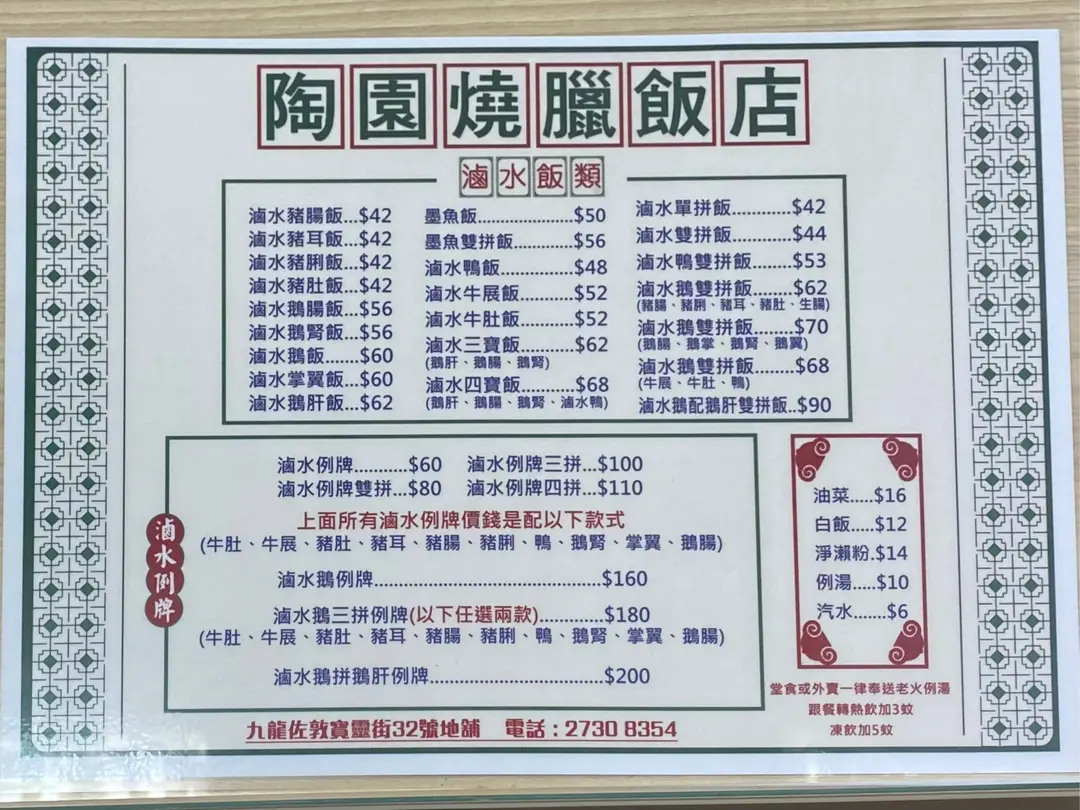 陶園燒臘飯店
滷水飯類
滷水豬腸飯...$42
滷水豬耳飯...$42
滷水豬脷飯...$42
滷水豬肚飯...$42
滷水鵝腸飯...$56
滷水鵝腎飯...$56
滷水鵝飯...$60
滷水掌翼飯...$60
滷水鵝肝飯...$62
墨魚飯.................$50
墨魚雙拼飯...........$56
滷水鴨飯.............$48
滷水牛展飯..........$52
滷水牛肚飯..........$52
滷水三寶飯..........$62
(鵝肝、鵝腸、鵝腎)
滷水四寶飯..........$68
(鵝肝、鵝腸、鵝腎、滷水鴨)
滷水單拼飯...........$42
滷水雙拼飯...........$44
滷水鴨雙拼飯........$53
滷水鵝雙拼飯........$62
(豬腸、豬脷、豬耳、豬肚、生腸)
滷水鵝雙拼飯........$70
(鵝腸、鵝掌、鵝腎、鵝翼)
滷水鵝雙拼飯........$68
(牛展、牛肚、鴨)
滷水鵝配鵝肝雙拼飯..$90
滷水例牌
滷水例牌...........$60 滷水例牌三拼...$100
滷水例牌雙拼...$80 滷水例牌四拼...$110
上面所有滷水例牌價錢是配以下款式
(牛肚、牛展、豬肚、豬耳、豬腸、豬脷、鴨、鵝腎、掌翼、鵝腸)
滷水鵝例牌..............................................$160
滷水鵝三拼例牌(以下任選兩款).............$180
(牛肚、牛展、豬肚、豬耳、豬腸、豬脷、鴨、鵝腎、掌翼、鵝腸)
滷水鵝拼鵝肝例牌...................................$200
油菜.....$16
白飯.....$12
淨瀨粉.$14
例湯.....$10
汽水.......$6
堂食或外賣一律奉送老火例湯
跟餐轉熱飲加3蚊
凍飲加5蚊
九龍佐敦寶靈街32號地舖 電話：2730 8354